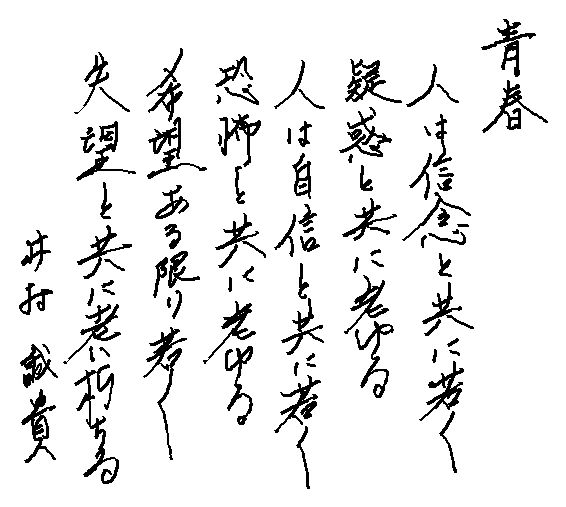 青春
人は信念と共に若く
疑惑と共に老ゆる
人は自信と共に若く
恐怖と共に老ゆる
希望ある限り若く
失望と共に老い朽ちる
井村 誠貴